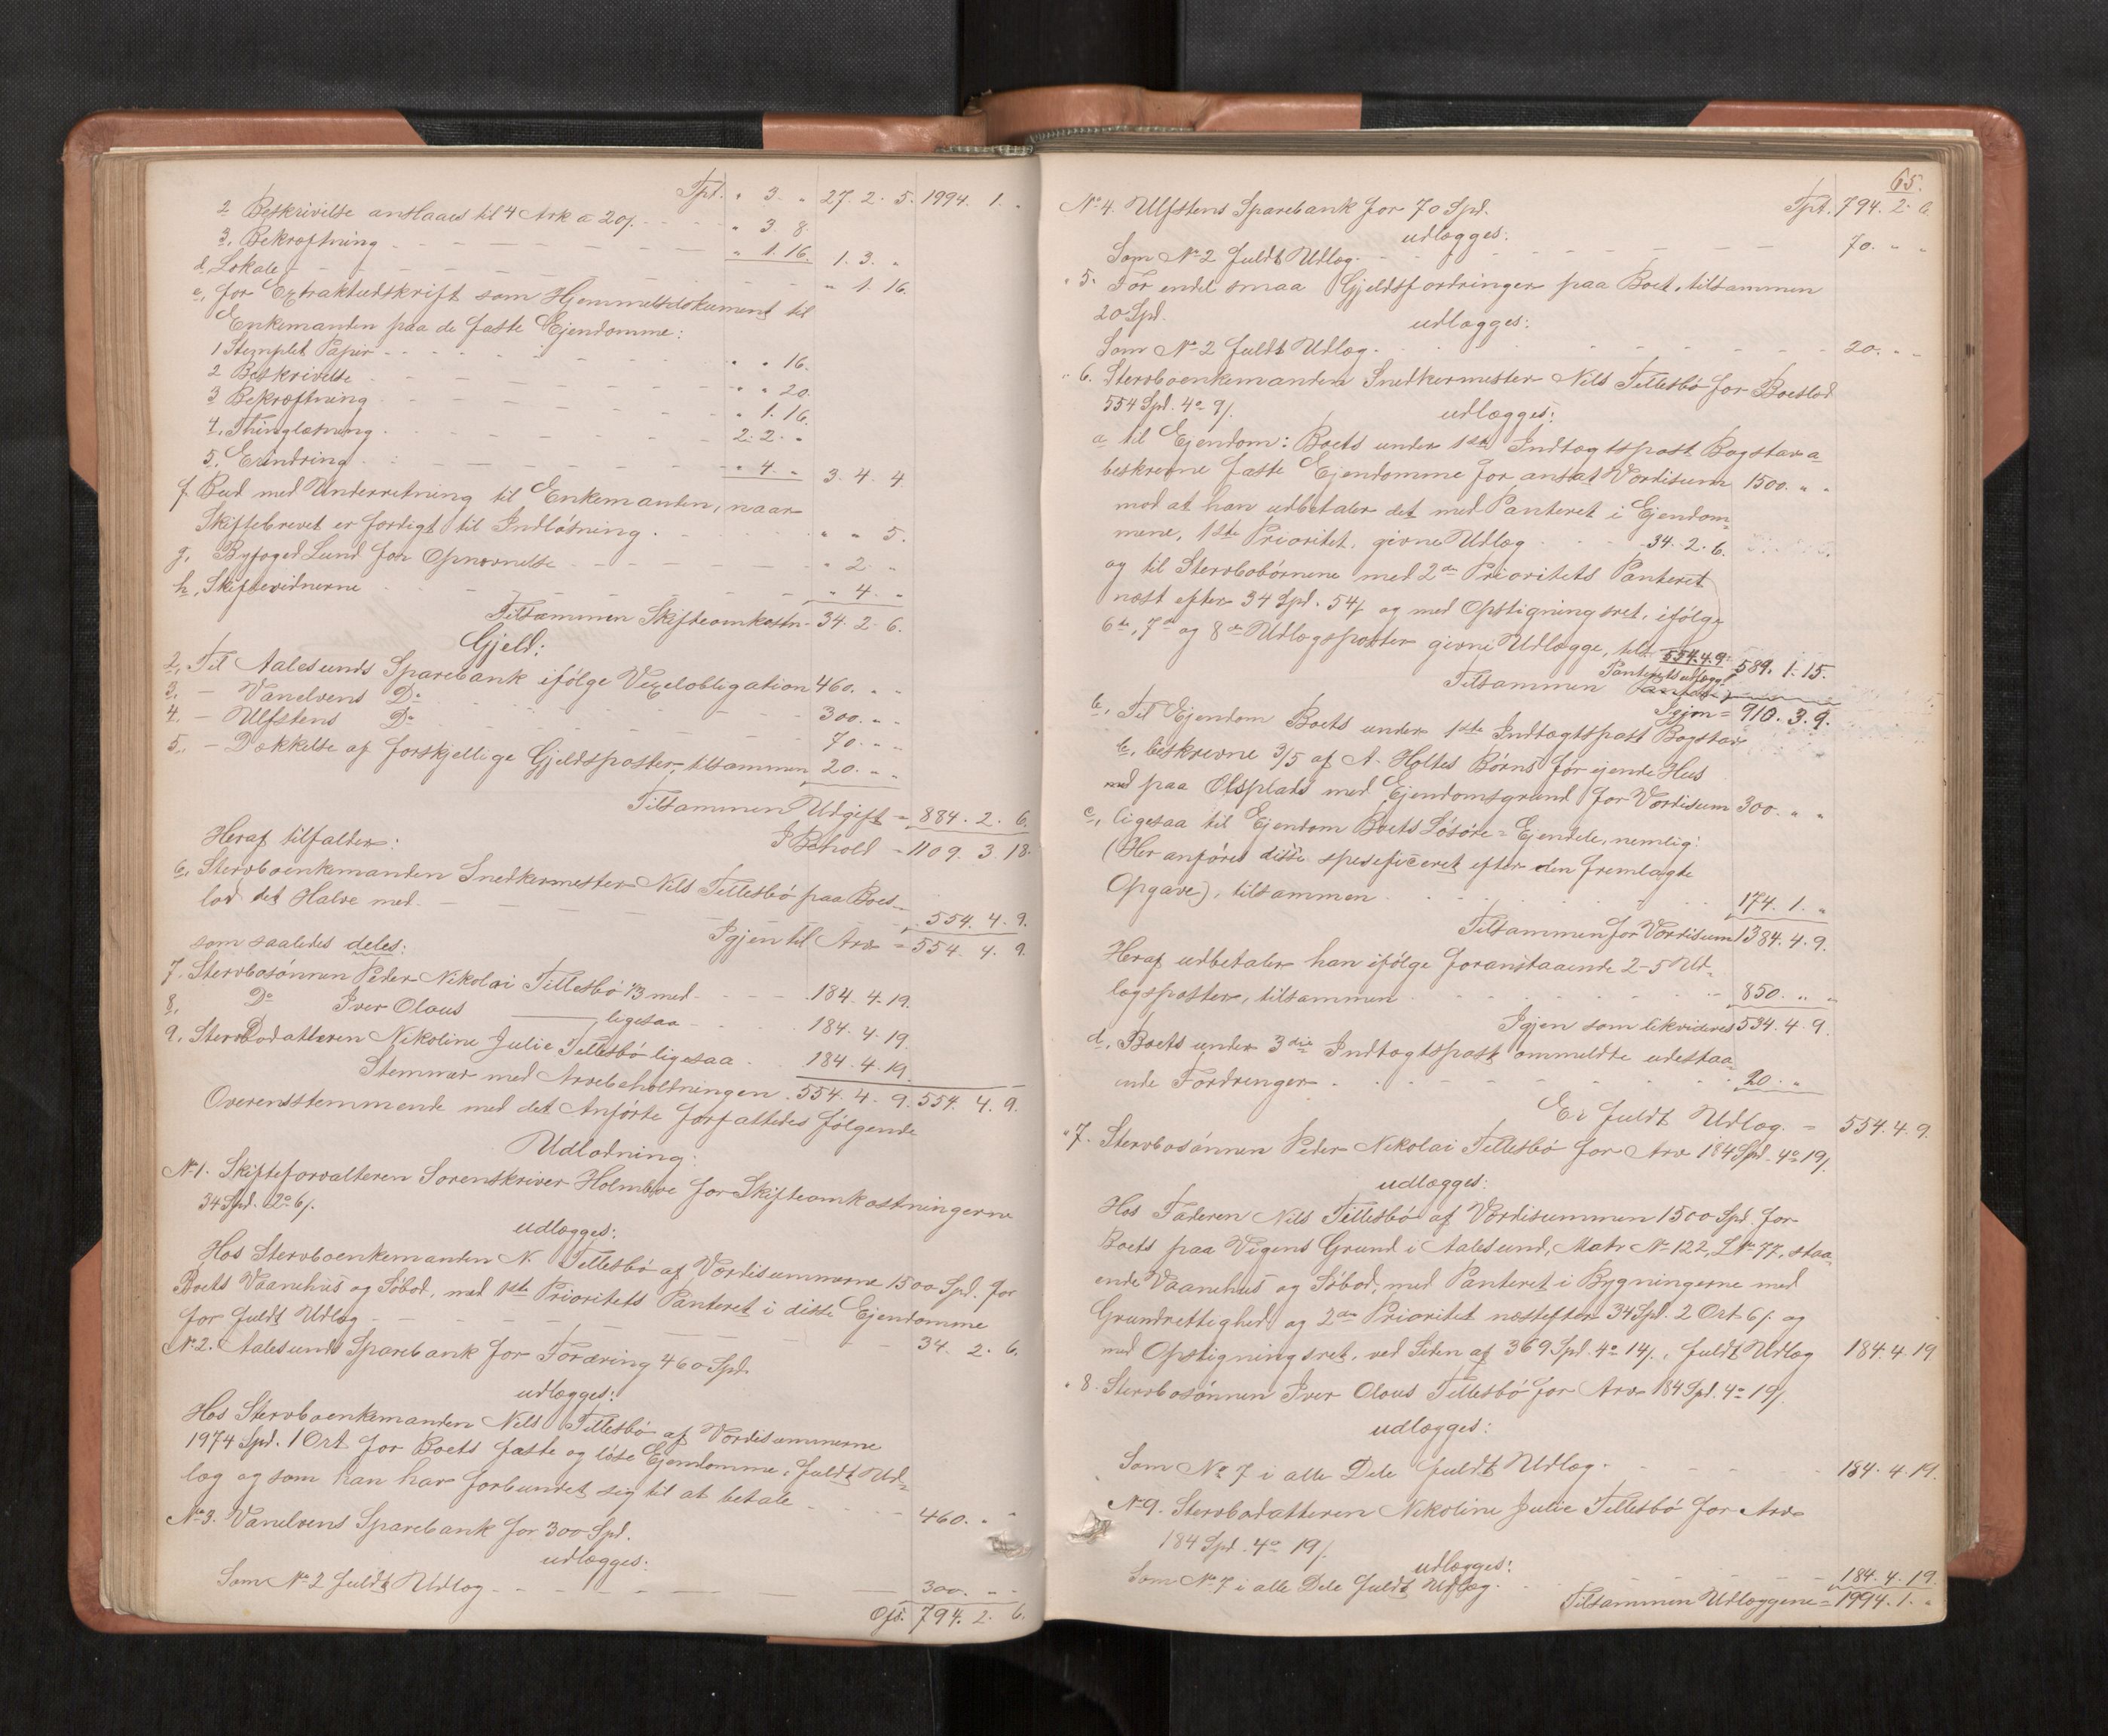 Tpt. " 3. " 27. 2. 5. 1994. 1. "
2 Beskrivelse anslaaes til 4 Ark a 20/. " 3. 8.
3. Bekræftning " 1. 16. 1. 3. "
d, Lokale " 1. 16.
e, for Extraktudskrift som Hjemmelsdokument til
Enkemanden paa de faste Ejendomme:
1 Stemplet Papir " " 16.
2 Beskrivelse " " 20.
3 Bekræftning " 1. 16.
4. Thinglæsning 2. 2. "
5. Erindring " 4. " 3. 4. 4
f. Bud med Underretning til Enkemanden, naar
Skiftebrevet er færdigt til Indløsning " " 5.
g, Byfoged Lund for Opnævnelse " 2. "
h, Skiftevidnerne " 4. "
Tilsammen Skifteomkostn. 34. 2. 6.
Gjeld:
2, Til Aalesunds Sparebank ifølge Vexelobligation 460. " "
3. — Vanelvens Do 300. " "
4. — Ulfstens Do 70. " "
5. — Dækkelse af forskjellige Gjeldsposter, tilsammen 20. " "
Tilsammen Udgift = 884. 2. 6.
Heraf tilfalder: I Behold = 1109. 3. 18.
6, Stervboenkemanden Snedkermester Nils Tillesbø paa Boes-
lod det Halve med 554. 4. 9.
Igjen til Arv = 554. 4. 9.
som saaledes deles:
7. Stervbosønnen Peder Nikolai Tillesbø 1/3 med 184. 4. 19.
8, Do Iver Olaus — ligesaa 184. 4. 19.
9. Stervbodatteren Nikoline Julie Tillesbø ligesaa 184. 4. 19.
Stemmer med Arvebeholdningen 554. 4. 9. 554. 4. 9.
Overensstemmende med det Anførte forfattedes følgende
Udlodning:
No 1. Skifteforvalteren Sorenskriver Holmboe for Skifteomkostningerne
34 Spd. 2o 6/.
udlægges:
Hos Stervboenkemanden N. Tillesbø af Værdisummerne 1500 Spd. for
Boets Vaanehus og Søbod, med 1ste Prioritets Panteret i disse Ejendomme
for fuldt Udlæg 34. 2. 6.
No 2. Aalesunds Sparebank for Fordring 460 Spd.
udlægges:
Hos Stervboenkemanden Nils Tillesbø af Værdisummerne
1974 Spd. 1 Ort for Boets faste og løse Ejendomme, fuldt Ud-
læg og som han har forbundet sig til at betale 460. " "
No 3. Vanelvens Sparebank for 300 Spd.
udlægges:
Som No 2 fuldt Udlæg 300. " "
Ofs. 794. 2. 6.
65.
No 4. Ulfstens Sparebank for 70 Spd. Tpt. 794. 2. 6.
udlægges:
Som No 2 fuldt Udlæg 70. " "
" 5. For endel smaa Gjeldsfordringer paa Boet, tilsammen
20 Spd.
udlægges:
Som No 2 fuldt Udlæg 20. " "
" 6. Stervboenkemanden Snedkermester Nils Tillesbø for Boeslod
554 Spd. 4o 9/.
udlægges:
a til Ejendom: Boets under 1ste Indtægtspost Bogstav a
beskrevne faste Ejendomme for ansat Værdisum 1500. " "
mod at han udbetaler det med Panteret i Ejendom-
mene, 1ste Prioritet, givne Udlæg 34. 2. 6.
og til Stervbobørnene med 2den Prioritets Panteret
næst efter 34 Spd. 54/ og med Opstigningsret, ifølge
6te, 7de og 8de Udlægsposter givne Udlægge, tils. 554. 4. 9. 589. 1. 15.
Tilsammen Panteretsudlægg
Igjen = 910. 3. 9.
b, Til Ejendom Boets under 1ste Indtægtspost Bogstav
b, beskrevne 3/5 af A. Holtes Børns før ejende Hus
ved paa Olsplads med Ejendomsgrund for Værdisum 300. " "
c, ligesaa til Ejendom Boets Løsøre-Ejendele, nemlig:
(Her anføres disse spesificeret efter den fremlagte
Opgave), tilsammen 174. 1. "
Tilsammen for Værdisum 1384. 4. 9.
Heraf udbetaler han ifølge foranstaaende 2-5 Ud-
lægsposter, tilsammen 850. " "
Igjen som likvideres 534. 4. 9.
d, Boets under 3die Indtægtspost ommeldte udestaa-
ende Fordringer 20. "
Er fuldt Udlæg = 554. 4. 9.
" 7. Stervbosønnen Peder Nikolai Tillesbø for Arv 184 Spd. 4o 19/.
udlægges:
Hos Faderen Nils Tillesbø af Værdisummen 1500 Spd. for
Boets paa Vigens Grund i Aalesund, Matr No 122, LNo 77, staa-
ende Vaanehus og Søbod, med Panteret i Bygningerne med
Grundrettighed og 2den Prioritet næstefter 34 Spd. 2 Ort 6/. og
med Opstigningsret, ved Siden af 369 Spd. 4o 14/., fuldt Udlæg 184. 4. 19
" 8. Stervbosønnen Iver Olaus Tillesbø for Arv 184 Spd. 4o 19/.
udlægges:
Som No 7 i alle Dele fuldt Udlæg 184. 4. 19.
No 9. Stervbodatteren Nikoline Julie Tillesbø for Arv
184 Spd. 4o 19/.
udlægges:
Som No 7 i alle Dele fuldt Udlæg 184. 4. 19.
Tilsammen Udlæggene = 1994. 1. "